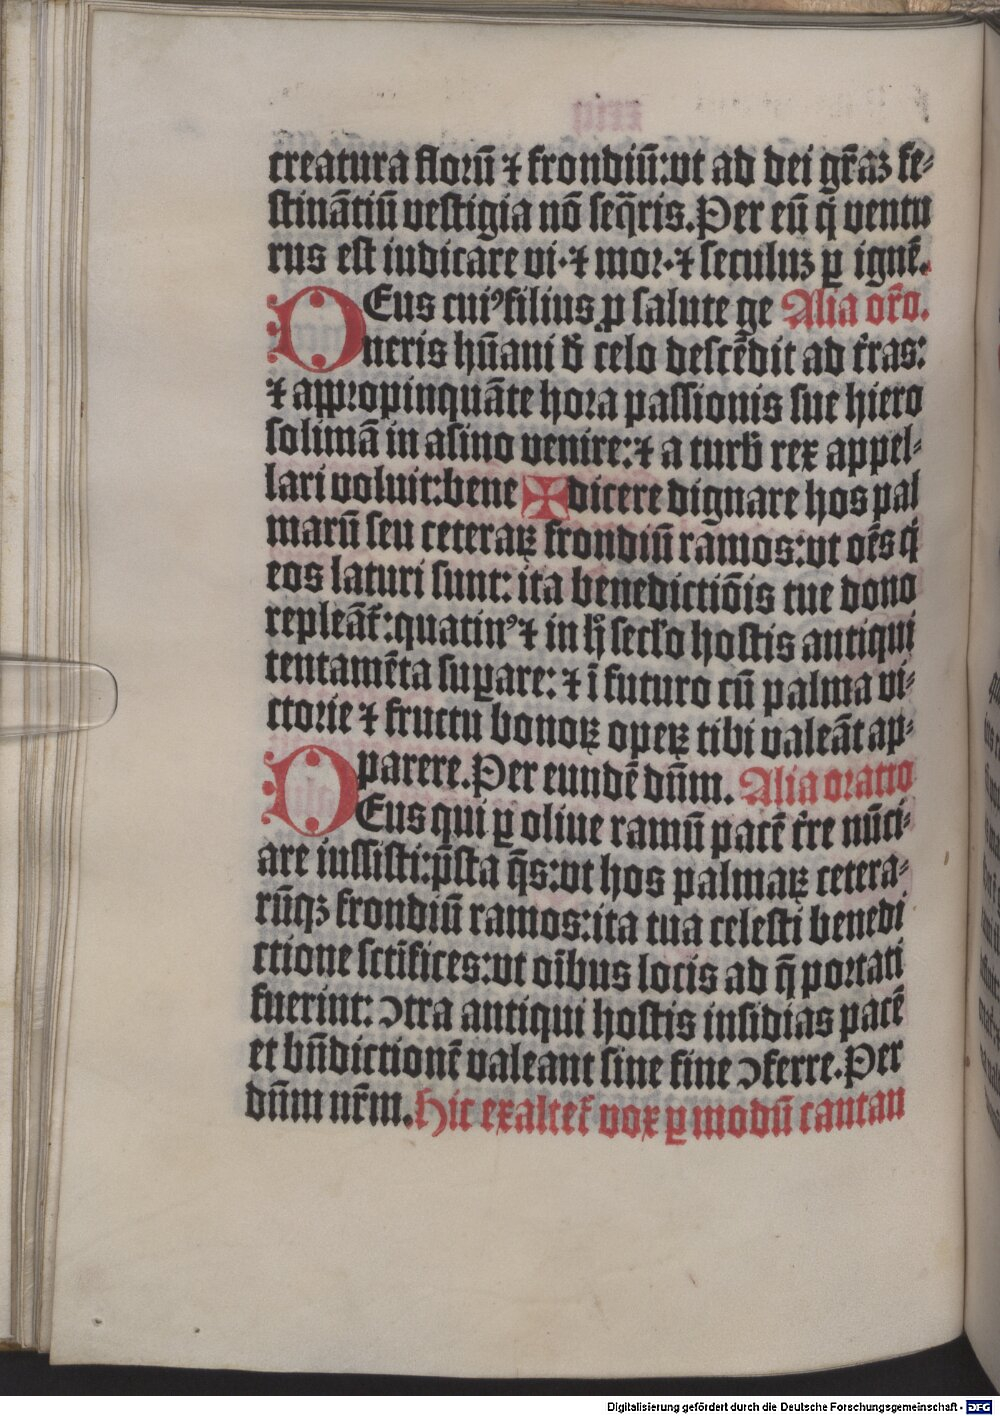 creatura florū ⁊ frondiū:vt ad dei gr̄aꝫ fe⸗
ſtinātiū veſtigia nō ſeq̄ris.Per eū q̇ ventu
rus eſt iudicare vi·⁊ moꝛ·⁊ ſeculuꝫ ꝑ ignē.
DEus cuiꝰfilius ꝓ ſalute ge Alia or̄o.
neris hūani d̄ celo deſcēdit ad t̄ras:
⁊ aꝓpropinquāte hoꝛa paſſionis ſue hiero
ſolimā in aſino venire:⁊ a turb̄ rex appel⸗
lari voluit:bene ✠dicere dignare hos pal
marū ſeu ceteraꝝ frondiū ramos:vt oēs q̇
eos laturi ſunt: ita benedictiōis tue dono
repleāt᷑:quatinꝰ⁊ in h̄ ſecl̄o hoſtis antiqui
tentamēta ſuꝑare:⁊ ī futuro cū palma vi⸗
ctoꝛie ⁊ fructu bonoꝝ opeꝝ tibi valeāt ap⸗
parere.Per eundē dn̄m. Alia oꝛatio
DEus qui ꝑ oliue ramū pacē t̄re nūci⸗
are iuſſiſti:p̄ſta q̄s:vt hos palmaꝝ cetera⸗
rūqꝫ frondiū ramos:ita tua celeſti benedi
ctione ſctīfices:vt oībus locis ad q̄ poꝛtati
fuerint: ꝯtra antiqui hoſtis inſidias pacē
et bn̄dictionē valeant ſine fine ꝯferre.Per
dn̄m nr̄m.Hic exaltet᷑ vox ꝑ modū cantan
Digitalisierung gefördert durch die Deutsche Forschungsgemeinschaft - DFG